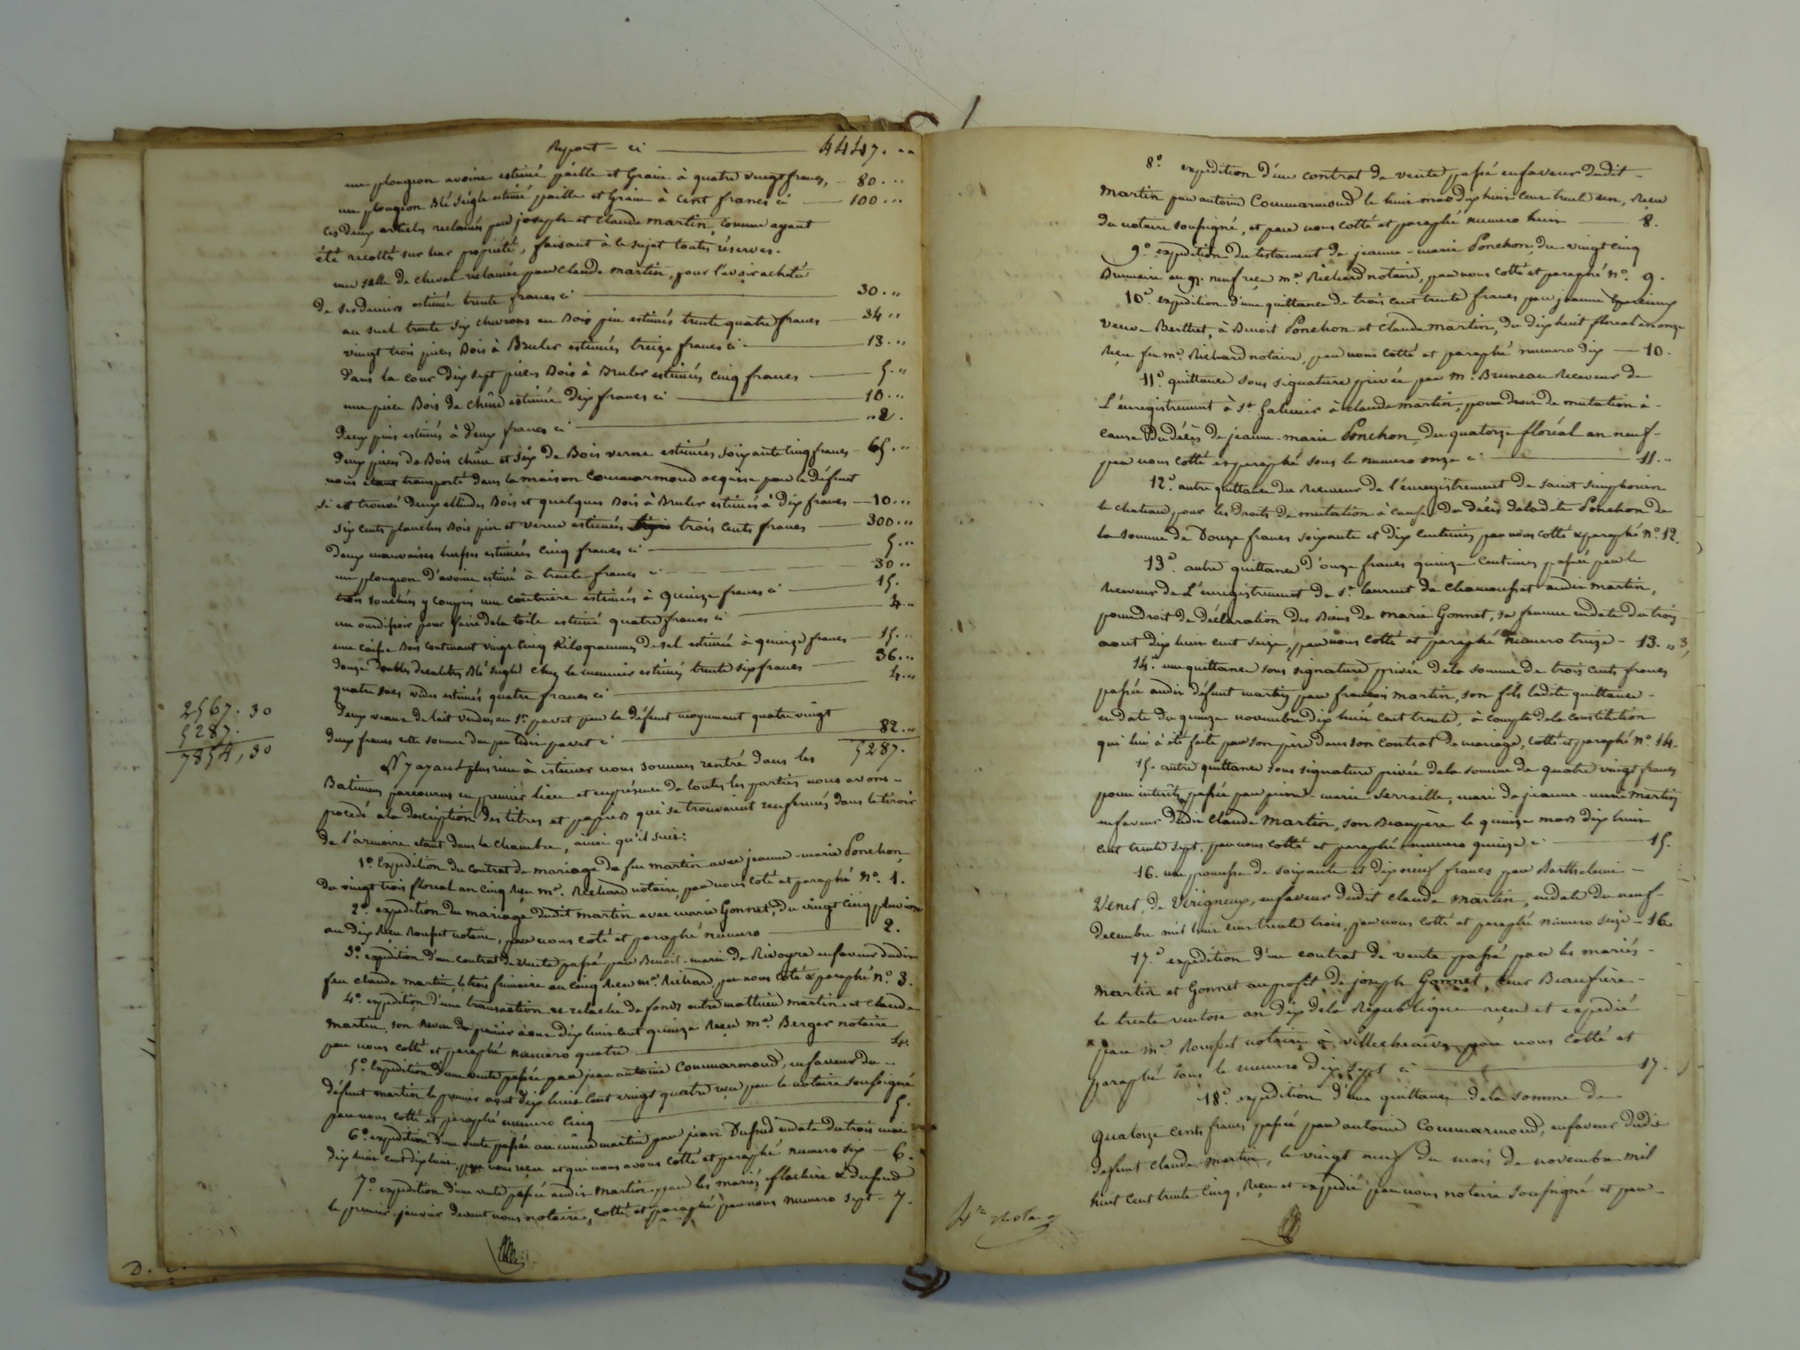 Report — ci — 4447. "
un plongeon avoine estimé paille et Grain à quatre vingt francs, — 80. "
un plongeon Blé seigle estimé paille et Grain à Cent francs ci — 100. "
ces deux articles reclamés par joseph et Claude martin comme ayant
été recolté sur leur propriété, faisant à ce sujet toutes réserves.
une selle de cheval reclamée par Claude martin, pour l'avoir acheté
de ses deniers estimée trente francs ci — 30. "
au suel trente six chevrons en Bois pin estimés trente quatre francs — 34 "
vingt trois pieces Bois à Bruler estimées treize francs ci — 13. "
dans la cour dix sept pieces Bois à Bruler estimées cinq francs — 5. "
une piece Bois de chêne estimée dix francs ci — 10. "
deux pins estimés à deux francs ci — " 2.
deux pieces de Bois chêne et six de Bois verne estimées soixante cinq francs — 65. "
nous étant transporté dans la maison Commarmond acquise par le défunt
si est trouvé deux échelles Bois et quelques Bois à Bruler estimés à dix francs — 10. "
six cents planches Bois pin et verne estimées trois cents francs — 300. "
deux mauvaises herses estimées cinq francs ci — 5. "
un plongeon d'avoine estimé à trente francs ci — 30 "
trois souches y compris une estimées à quinze francs ci — 15.
un ourdissoir pour faire de la toile estimé quatre francs ci — 4. "
une caisse Bois contenant vingt cinq Kilogrammes de sel estimée à quinze francs — 15. "
douze doubles decalitres Blé seigle chez le meunier estimés trente six francs — 36. "
quatre sacs vides estimés quatre francs ci — 4. "
deux veaux de lait vendus au Sr. pavet par le défunt moyennant quatre vingt
deux francs cette somme due par ledit pavet ci — 82. "
5287.
2567. 30
5287.
7854, 30
N'y ayant plus rien à estimer nous sommes rentré dans les
Batiments parcourus en premier lieu et en présence de toutes les parties nous avons
procédé à la description des titres et papiers qui se trouvaient renfermés dans le tiroir
de l'armoire étant dans la chambre, ainsi qu'il suit:
1º. Expédition du contrat de mariage de feu martin avec jeanne-marie Ponchon,
du vingt trois floreal an cinq reçu me. Richard notaire, par nous coté et paraphé Nº. 1.
2º. expédition du mariage dudit martin avec marie Gonnet, du vingt cinq pluviose
an dix reçu Rouset notaire, par nous coté et paraphé numero — 2.
3º. expédition d'un contrat de vente passé par Benoit-marie de Rivoyre en faveur dudit
feu claude martin, le trois frimaire an cinq reçu me. Richard, par nous coté & paraphé nº. 3.
4º. expédition d'une transaction et relache de fonds entre mathieu martin et claude
martin, son neveu du premier aout dix huit cent quinze reçu me. Berger notaire
par nous cotté et paraphé numero quatre — 4.
5º. Expédition d'une vente passée par jean antoine Commarmond, en faveur du
défunt martin le premier aout dix huit cent vingt quatre reçu par le notaire soussigné
par nous cotté et paraphé numero cinq — 5.
6º. expédition d'une vente passée au même martin par jean Dufoud en date du trois mai
dix huit cent dix huit, par nous reçu et que nous avons cotté et paraphé numero six — 6.
7º. expédition d'une vente passée audit Martin, par les mariés flachere & Dufoud
le premier janvier devant nous notaire, cotté et paraphé par nous numero sept — 7.
8º. expédition d'un contrat de vente passé en faveur dudit
Martin par antoine Commarmond le huit mai dix huit cent trente un, reçu
du notaire soussigné, et par nous cotté et paraphé numero huit — 8.
9º. expédition du testament de jeanne-marie Ponchon, du vingt cinq
Brumaire an neuf reçu me. Richard notaire, par nous cotté et paraphé nº. 9.
10º. expédition d'une quittance de trois cent trente francs, par jeanne
veuve Berthet, à Benoit Ponchon et Claude Martin, du dix huit floréal an onze
reçu feu me. Richard notaire, par nous cotté et paraphé numero dix — 10.
11º. quittance sous signature privée par M. Bruneau Receveur de
L'enregistrement à St. Galmier à claude martin, pour droit de mutation à
cause du décès de jeanne-marie Ponchon, du quatorze floréal an neuf
par nous cotté et paraphé sous le numero onze ci — 11. "
12º. autre quittance du Receveur de l'enregistrement de saint simphorien
le chateau, pour les droits de mutation à cause du décès de ladite Ponchon de
la somme de Douze francs soixante et dix centimes par nous cotté & paraphé Nº. 12.
13º. autre quittance d'onze francs quinze centimes passée par le
Receveur de L'enregistrement de St. laurent de Chamousset audit martin,
pour droit de déclaration des Biens de marie Gonnet, sa femme en date du trois
aout dix huit cent seize, par nous cotté et paraphé numero treize — 13. "
14º. une quittance sous signature privée de la somme de trois cents francs
passée audit défunt martin par francois martin, son fils ladite quittance
en date du quinze novembre dix huit cent trente, à compte de la constitution
qui lui a été faite par son père dans son contrat de mariage, cotté et paraphé nº. 14.
15º. autre quittance sous signature privée de la somme de quatre vingt francs
pour intérêts passée par pierre-marie Serraille, mari de jeanne-marie martin
en faveur dudit claude Martin, son Beaupère le quinze mars dix huit
cent trente sept, par nous cotté et paraphé numero quinze ci — 15.
16. une promesse de soixante et dix neuf francs par Barthelemi
Venet, de Virigneux, en faveur dudit claude Martin, en date du neuf
decembre mil huit cent trente trois, par nous cotté et paraphé numero seize — 16.
17º. expédition d'un contrat de vente passé par les mariés
Martin et Gonnet au profit de joseph Gonnet, leur Beaufrère
le trente ventose an dix de la République reçu et expédié
par me. Rouset notaire à villechenève par nous cotté et
paraphé sous le numero dix sept ci — 17.
18º. expédition d'une quittance de la somme de
quatorze cents francs passée par antoine Commarmond, en faveur dudit
défunt claude martin, le vingt neuf du mois de novembre mil
huit cent trente cinq, reçu et expédié par nous notaire soussigné et par